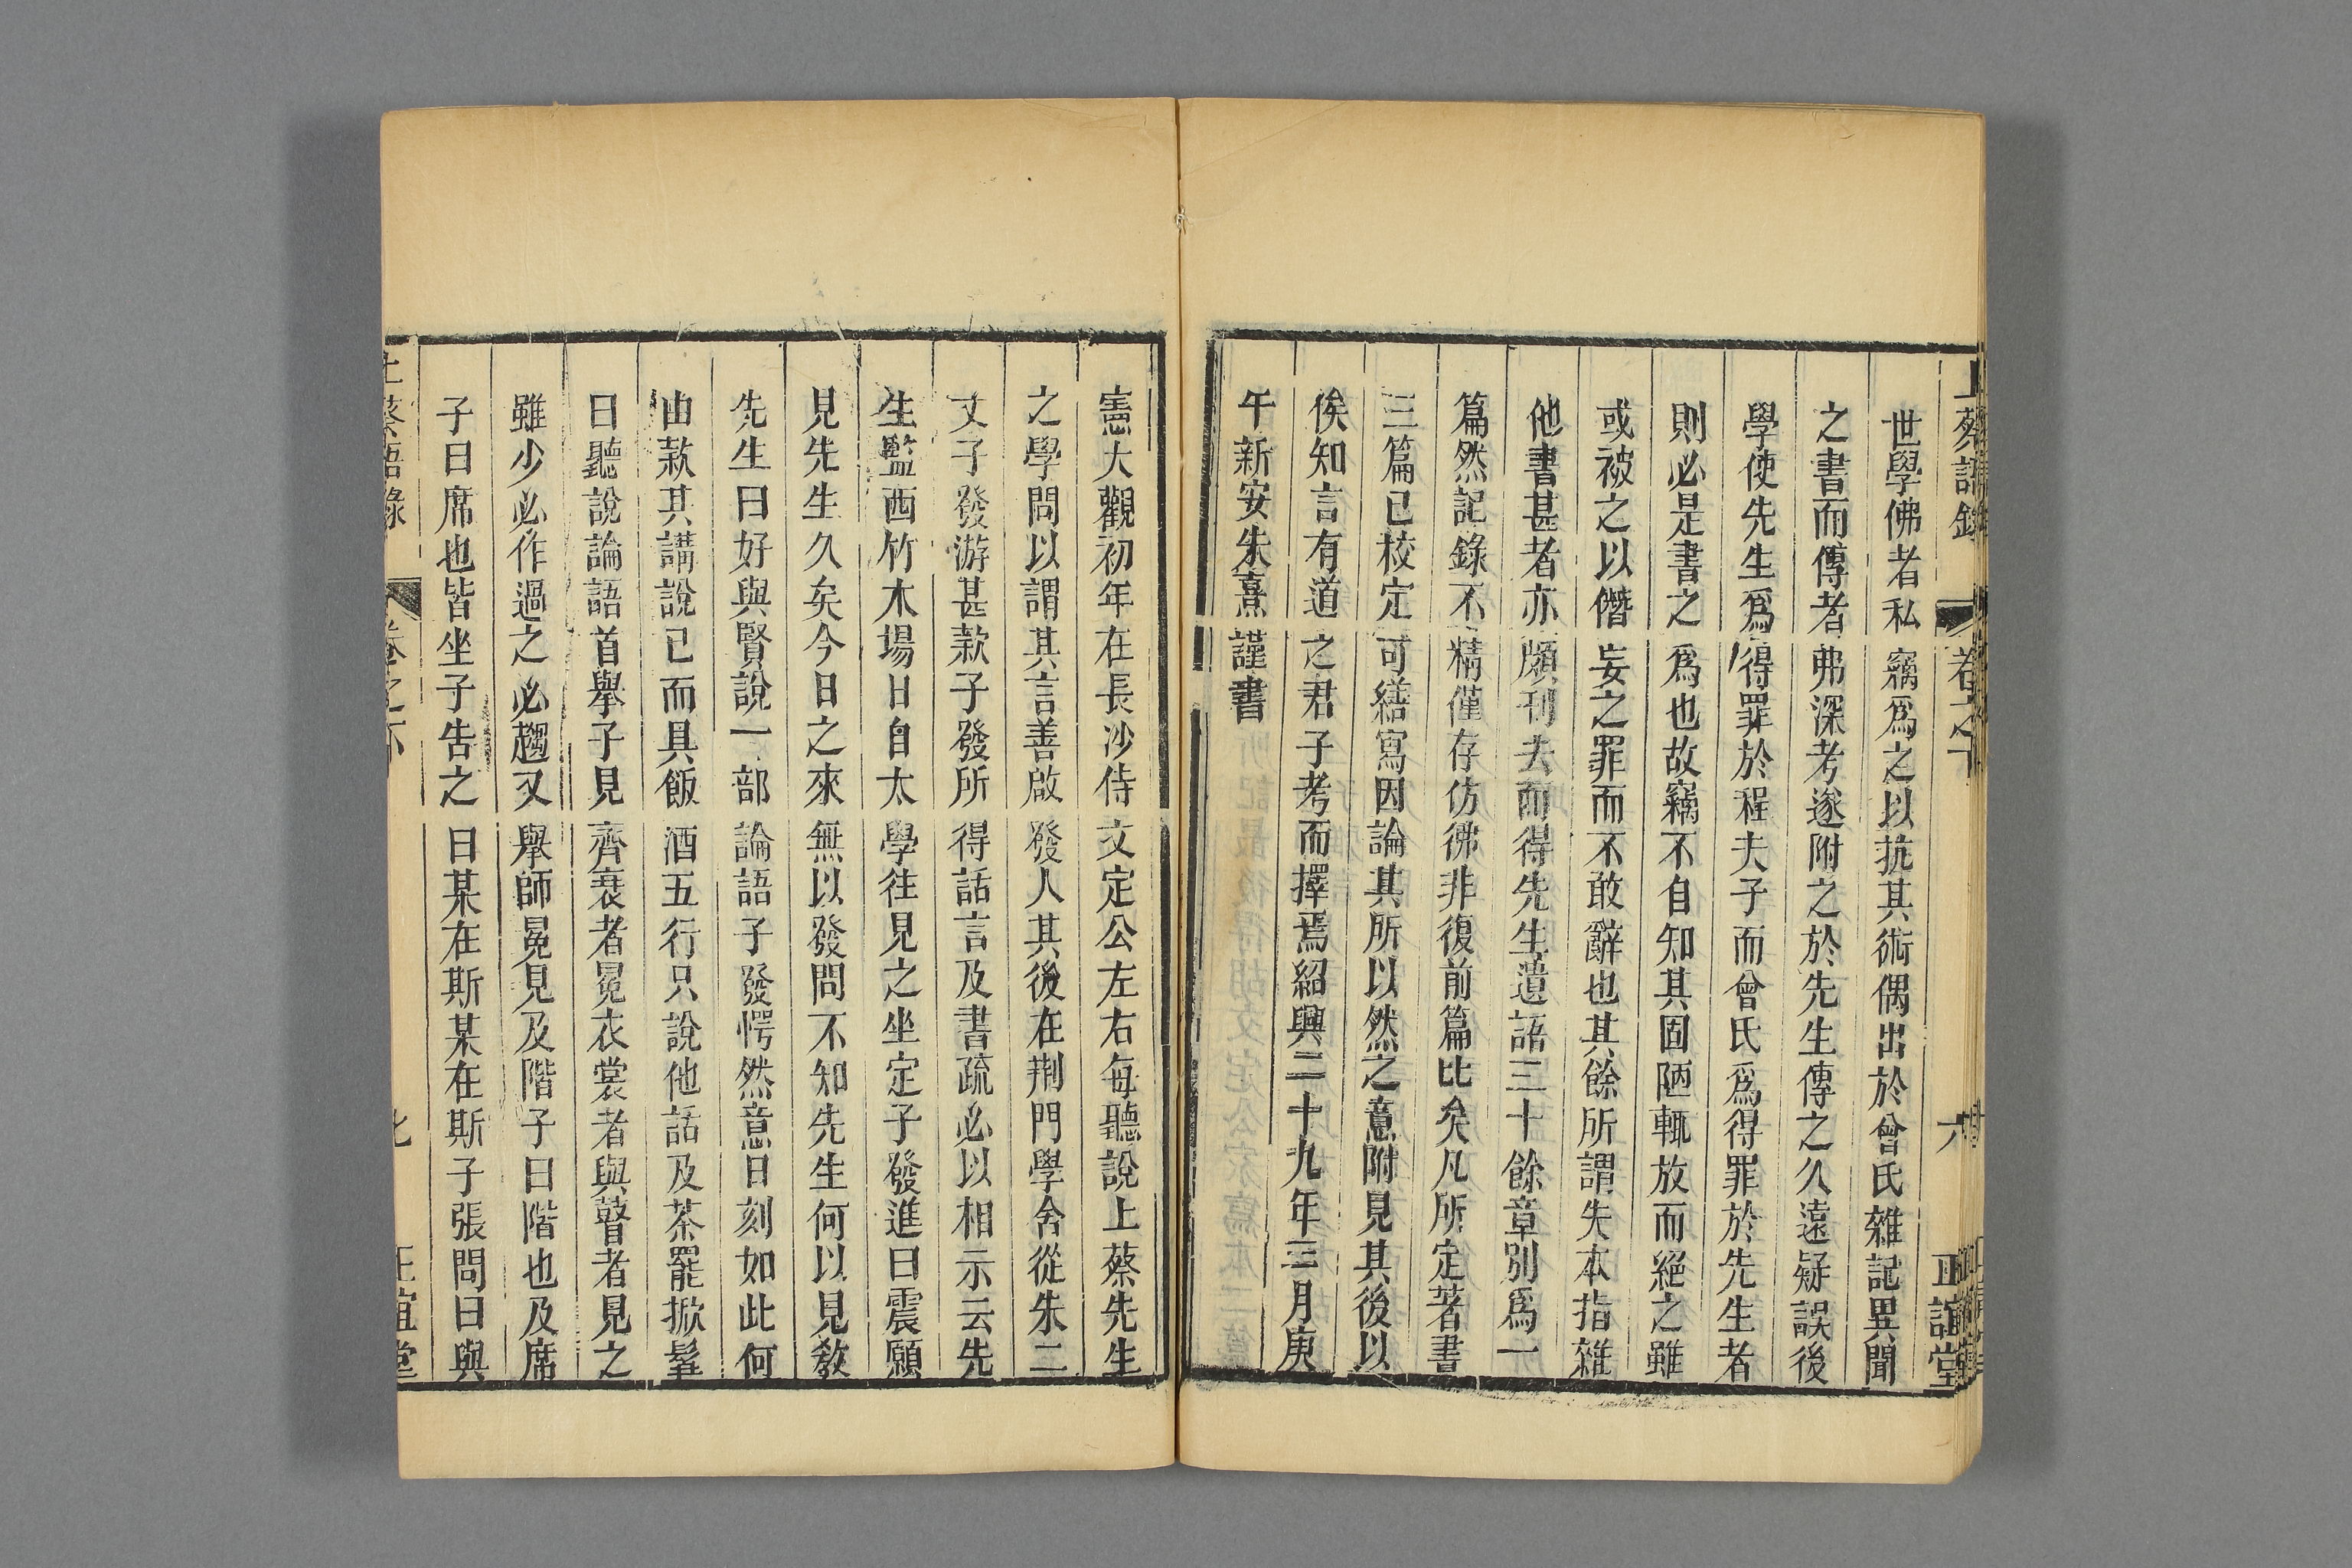 上蔡語錄 卷之下 六 正誼堂
世學佛者私竊爲之以抗其術偶出於曾氏雜記異聞
之書而傳者弗深考遂附之於先生傳之久遠疑誤後
學使先生爲得罪於程夫子而曾氏爲得罪於先生者
則必是書之爲也故竊不自知其固陋輒放而絕之雖
或被之以僭妄之罪而不敢辭也其餘所謂失本指雜
他書甚者亦頗刊去而得先生遺語三十餘章別爲一
篇然記錄不精僅存仿彿非復前篇比矣凡所定著書
三篇已校定可繕寫因論其所以然之意附見其後以
俟知言有道之君子考而擇焉紹興二十九年三月庚
午新安朱熹謹書
憲大觀初年在長沙侍文定公左右每聽說上蔡先生
之學問以謂其言善啟發人其後在荆門學舍從朱二
丈子發游甚款子發所得話言及書疏必以相示云先
生監西竹木場日自太學往見之坐定子發進曰震願
見先生久矣今日之來無以發問不知先生何以見敎
先生曰好與賢說一部論語子發愕然意日刻如此何
由款其講說已而具飯酒五行只說他話及茶罷掀髯
曰聽說論語首舉子見齊衰者冕衣裳者與瞽者見之
雖少必作過之必趨又舉師冕見及階子曰階也及席
子曰席也皆坐子告之曰某在斯某在斯子張問曰與
上蔡語錄 卷之下 七 正誼堂